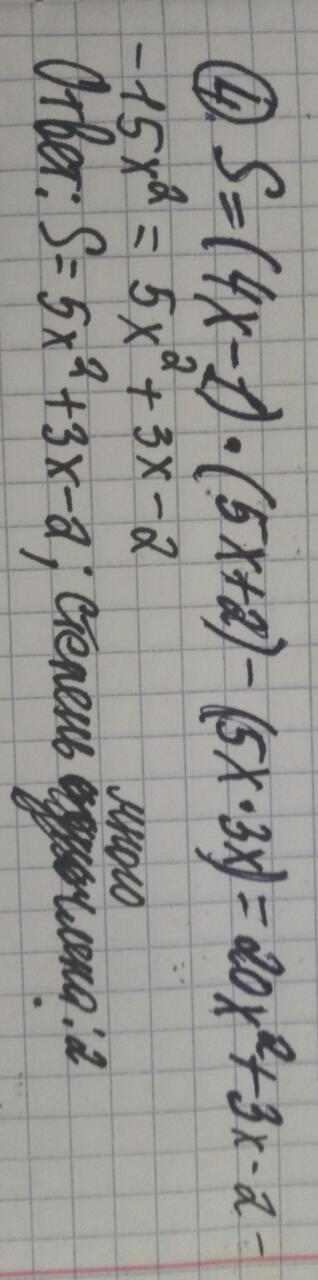 ④ S = (4x-1)·(5x+2) - (5x·3x) = 20x²+3x-2-
-15x² = 5x²+3x-2
Ответ: S = 5x²+3x-2; степень многочлена: 2